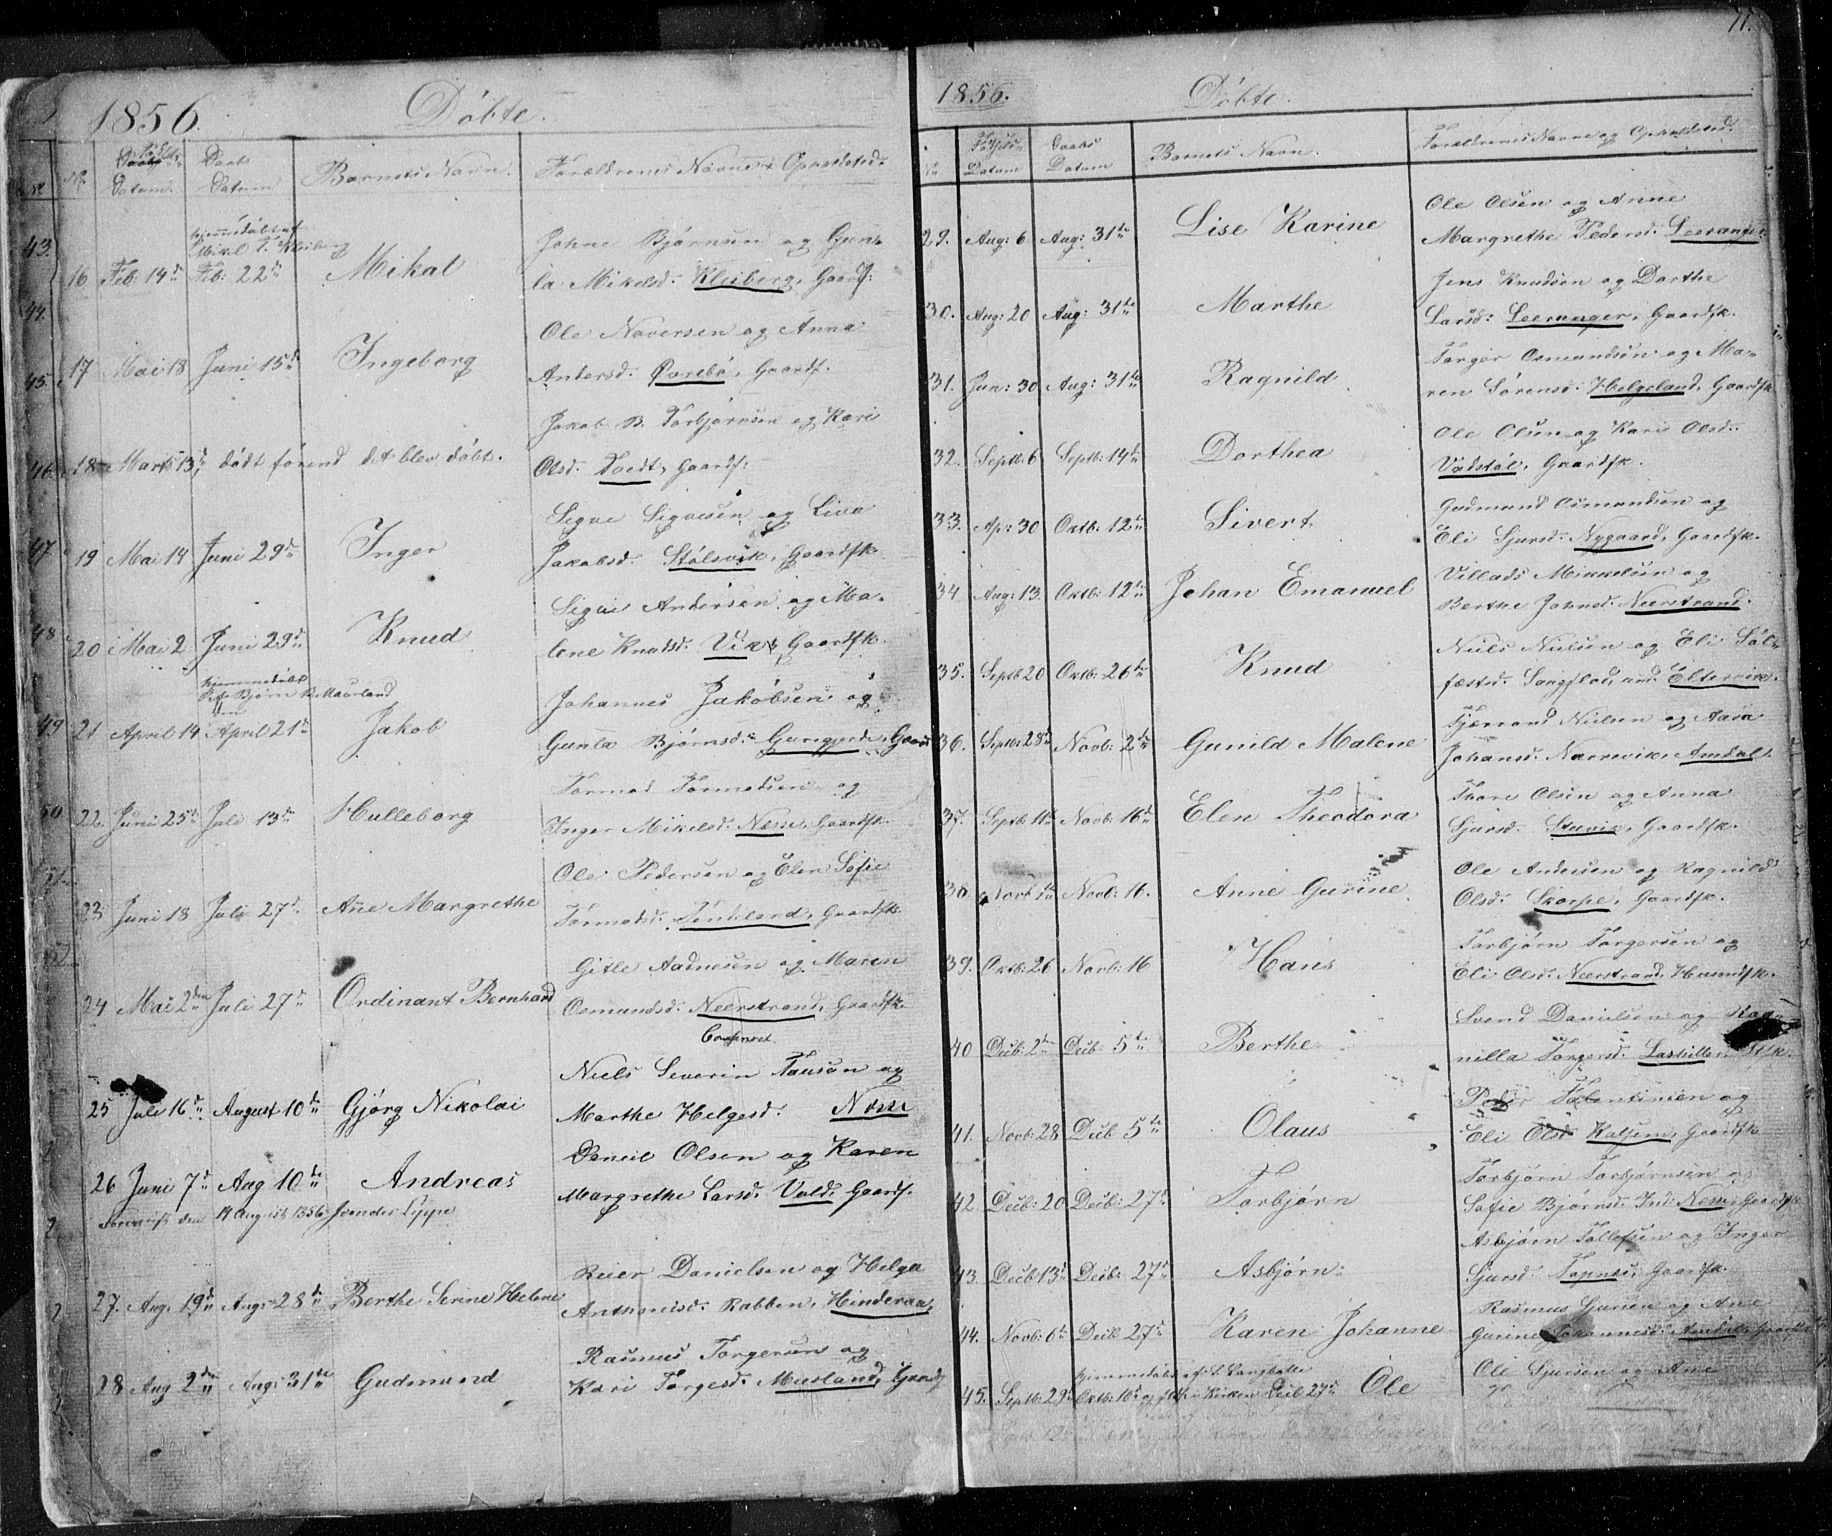 1856. Döbte.
No. Datum. Daabs Datum Barnets Navn. Forældrenes Navne & Opholdsted.
hjemmedöbt af
Mikal T. Kleiberg
16 Feb: 14de Feb: 22de Mikal Johne Bjørnsen og Gun-
la Mikelsd: Kleiberg, Gaardf:
17 Mai 18 Juni 15de Ingeborg Ole Naversen og Anna
Andersd: Gaardf.
18 Marts 13de, dödt førend det blev döbt. Jakob B. Torbjørnsen og Kari
Olsd: Tvedt, Gaardf:
19 Mai 14 Juni 29de Inger Sigve Sigvesen og Liva
Jakobsd: Stölsvik, Gaardfk.
20 Mai 2 Juni 29de Knud Sigve Andersen og Ma-
lene Knudsd: Vik, Gaardfk.
hjemmedöbt
af Bjørn B. Maurland
21 April 14 April 21de Jakob Johannes Jakobsen og
Gunla Bjørnsd: Gaard
22. Juni 25de Juli 13de Hulleborg Tormod Tormodsen og
Inger Mikelsd: Næss, Gaardfk.
23 Juni 18 Juli 27de Ane Margrethe Ole Pedersen og Elen Sofie
Tormodsd: Gaardfk.
24 Mai 2den Juli 27de Ordinant Bernhard Gitle Aadnesen og Maren
Osmundsd: Neerstrand, Gaardfk.
25 Juli 16de August 10de Gjørg Nikolai Niels Severin Tousön og
Marthe Helgesd: Næss
26 Juni 7de Aug 10de Andreas Daniel Olsen og Karen
Margrethe Larsd: Vold, Gaardf.
den 14 August 1856
27. Aug. 19de Aug: 28de Berthe Serine Helene Reier Danielsen og Helga
Anthonisd: Rabben, Hinderaa,
28 Aug 2den Aug: 31te Gudmund Rasmus Torgersen og
Kari Torgesd: Musland, Gaardf
11.
1856. Döbte.
No Födsels Datum Daabs Datum Barnets Navn. Forældrenes Navne og Opholdsted.
29. Aug: 6 Aug: 31te Lise Karine Ole Olsen og Anne
Margrethe Pedersd: Leeranger.
30. Aug: 20 Aug: 31te Marthe Jens Knudsen og Dorthe
Larsd: Leeranger, Gaardfk.
31. Jun: 30 Aug: 31te Ragnild Torger Osmundsen og Ma-
ren Sørensd: Helgeland, Gaardfk
32. Septb: 6 Septb: 14de Dorthea Ole Olsen og Kari Olsd:
Vadstöl, Gaardfk.
33. Ap: 30 Oktb: 12te Sivert Gudmund Osmundsen og
Eli Sjursd: Nygaard, Gaardfk.
34 Aug: 13. Oktb: 12te Johan Emanuel Villads Mikkelsen og
Berthe Johnsd: Neerstrand.
35. Septb 20 Oktb: 26te Knud Niels Nielsen og Eli Söl-
festsd: Eltesvik.
36. Septb: 28de Novb: 2den Gunild Malene Tjærand Nielsen og Aasa
Johansd: Amdal.
37. Septb: 11te Novb: 16de Elen Theodora Thore Olsen og Anna
Sjursd: Stuvik, Gaardfk.
38. Novb 1te Novb: 16. Anne Gurine Ole Andersen og Ragnild
Olsd: Skorpe, Gaardfk.
39. Oktb: 26 Novb: 16 Hans Torbjørn Torgersen og
Eli Olsd: Neerstrand, Huusmdfk.
40 Decb: 2den Decb: 5te Berthe Svend Danielsen og Rag-
nilla Torgersd:
41. Novb: 28 Decb 5te Olaus Peder Valentinsen og
Eli Olsd: Gaardfk
42. Decb: 20 Decb: 27de Torbjørn Torbjørn Torbjørnsen og
Sofie Bjørnsd: Ind: Næss, Gaardfk
43. Decb 13de Decb: 27de Asbjørn Asbjørn Tollefsen og Inger
Sjursd: Topnes, Gaardfk.
44. Novb: 6te Decb 27de Karen Johanne Rasmus Sjursen og Ane
Gurine Johannesd: Amdal, Gaardfk
45. Septb: 29de Oktb: 10de i Kirken Decb 27de Ole Ole Sjursen og Ane